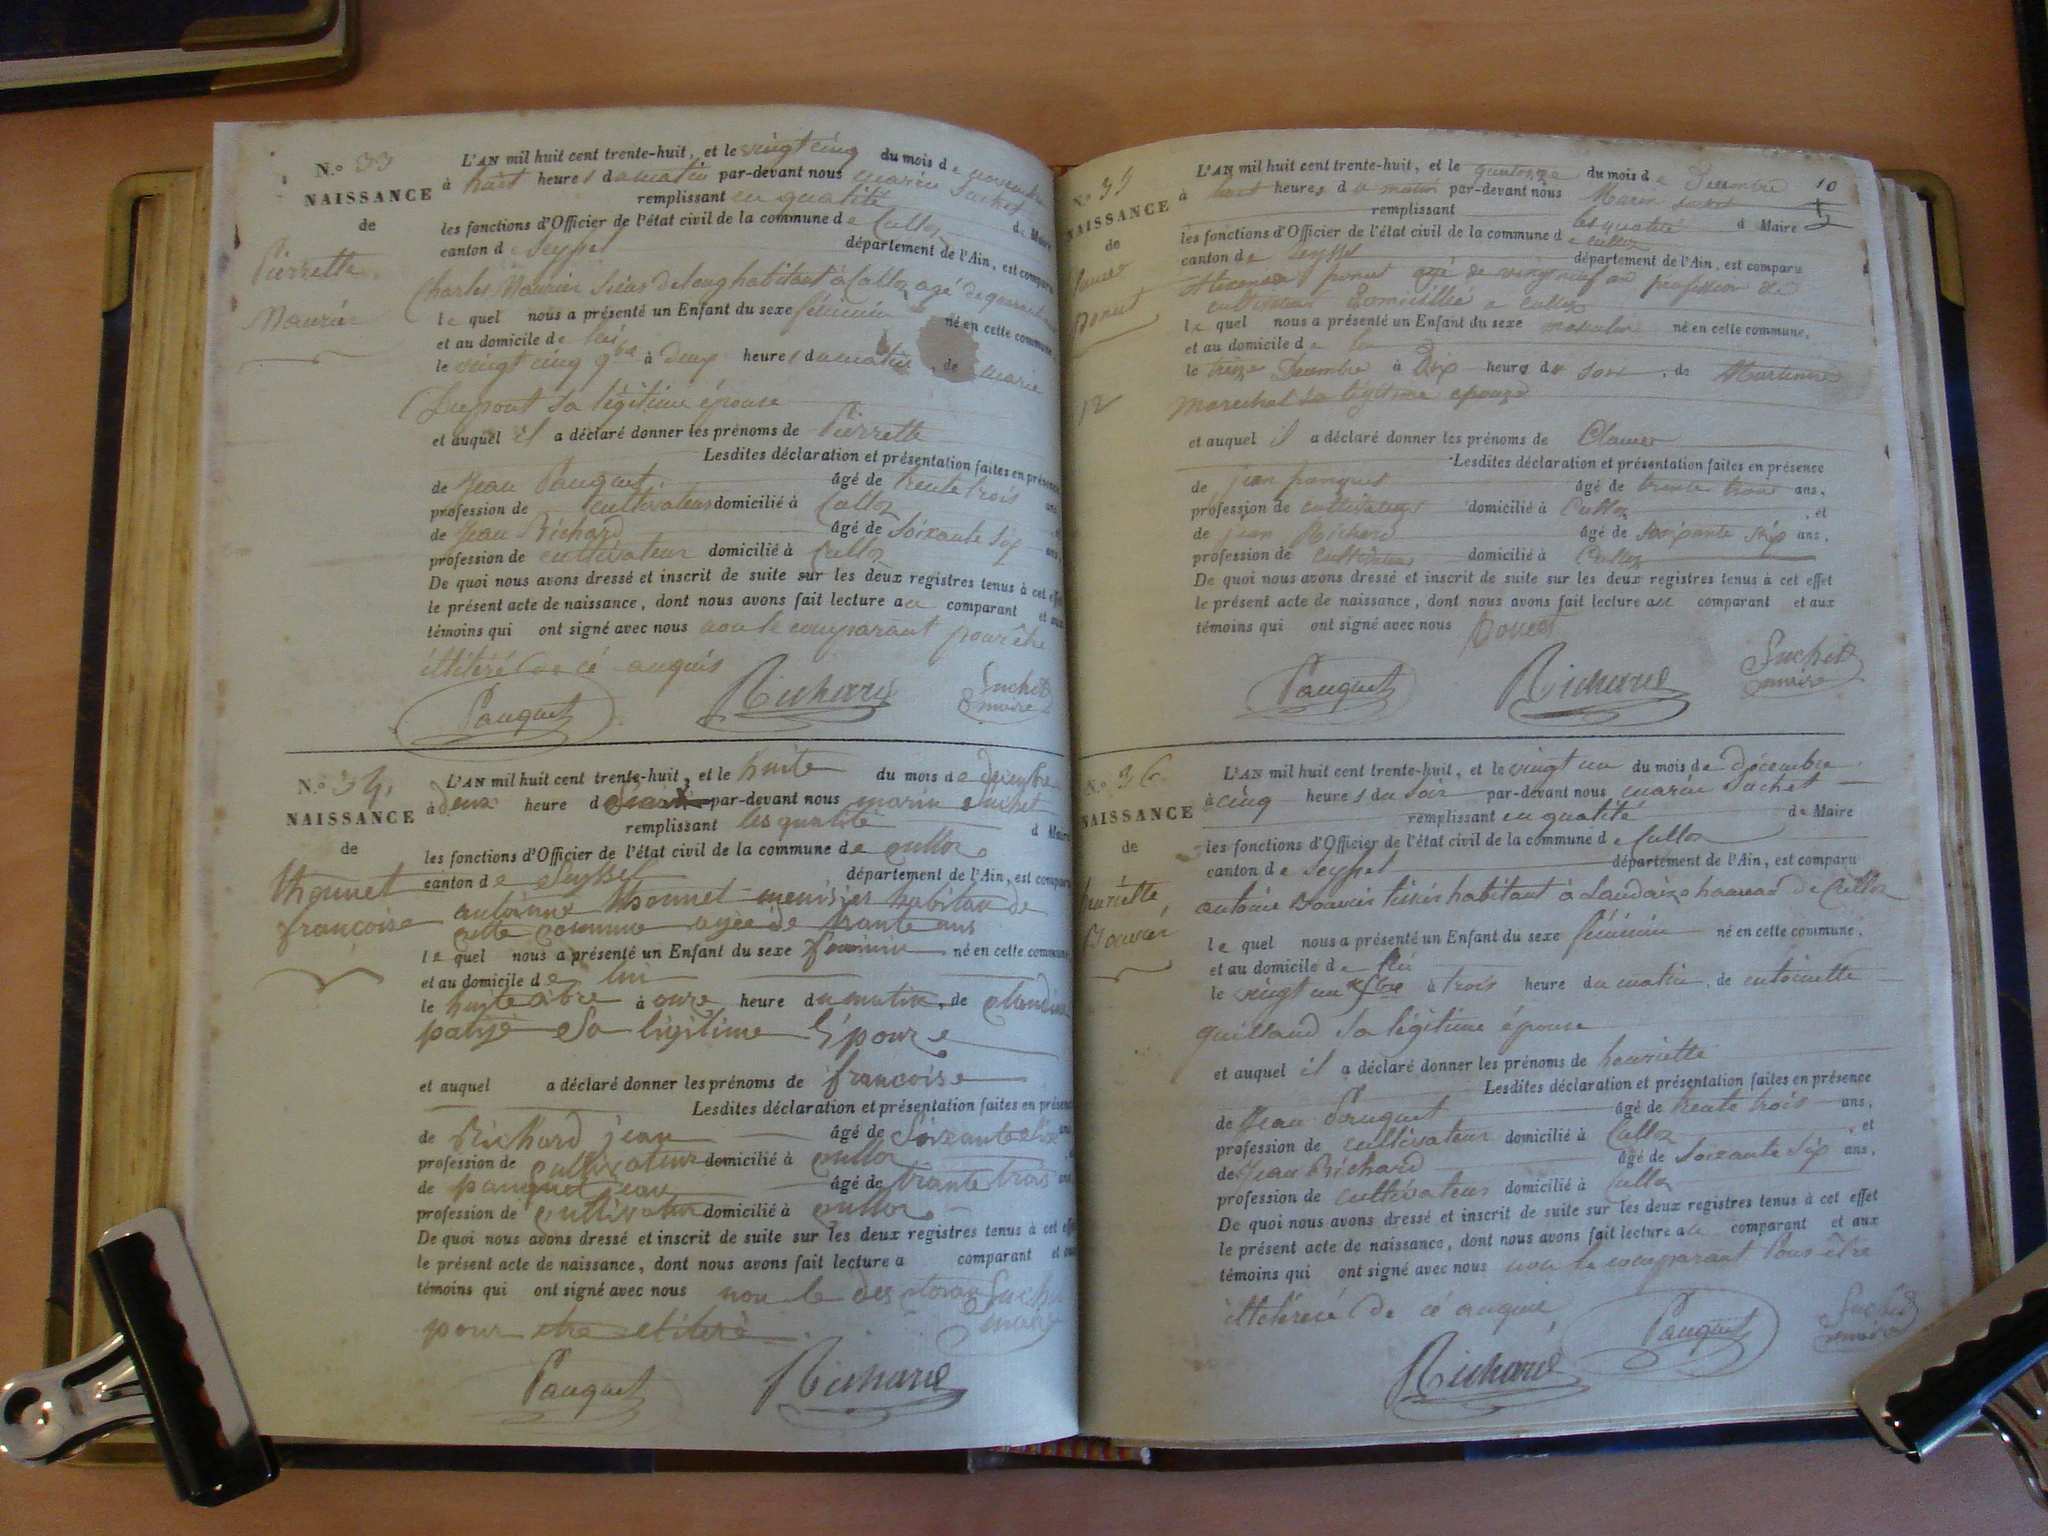 N.o 33
NAISSANCE
de
Pierrette
L'AN mil huit cent trente-huit, et le vingt cinq du mois de novembre
à huit heures du matin par-devant nous marin Suchet
remplissant en qualité de Maire
les fonctions d'Officier de l'état civil de la commune de Culloz
canton de Seyssel département de l'Ain, est comparu
Charles habitant à Culloz agé de quarante
le quel nous a présenté un Enfant du sexe féminin né en cette commune,
et au domicile de lui
le vingt cinq 9bre à deux heures du matin, de marie
Dupont sa légitime épouse
et auquel il a déclaré donner les prénoms de Pierrette
Lesdites déclaration et présentation faites en présence
de Jean Pauquet âgé de trente trois ans,
profession de cultivateur domicilié à Culloz, et
de Jean Richard âgé de soixante six ans,
profession de cultivateur domicilié à Culloz
De quoi nous avons dressé et inscrit de suite sur les deux registres tenus à cet effet
le présent acte de naissance, dont nous avons fait lecture au comparant et aux
témoins qui ont signé avec nous non le comparant pour être
illitéré de cé
Pauquet Richard Suchet maire
N.o 34
NAISSANCE
de
thonnet
françoise
L'AN mil huit cent trente-huit, et le huite du mois de
à deux heure d par-devant nous marin Suchet
remplissant les qualité d Maire
les fonctions d'Officier de l'état civil de la commune de culloz
canton de Seyssel département de l'Ain, est comparu
antoinne thonnet menisier habitan de
cette commune agée de trante ans
le quel nous a présenté un Enfant du sexe feminin né en cette commune,
et au domicile de lui
le huite à onze heure du matin, de claudine
sa ligitime Épouse
et auquel a déclaré donner les prénoms de françoise
Lesdites déclaration et présentation faites en présence
de Richard jean âgé de Soixante six ans
profession de cultivateur domicilié à culloz, et
de pauquet jean âgé de trante trois ans,
profession de cultivateur domicilié à culloz
De quoi nous avons dressé et inscrit de suite sur les deux registres tenus à cet effet
le présent acte de naissance, dont nous avons fait lecture a comparant et aux
témoins qui ont signé avec nous non le Suchet
pour etre maire
Pauquet Richard
N.o 35
NAISSANCE
de
Ponet
12
10
L'AN mil huit cent trente-huit, et le quinze du mois de Decembre
à huit heures du matin par-devant nous Marin Suchet
remplissant les qualité d Maire
les fonctions d'Officier de l'état civil de la commune de culloz
canton de Seyssel département de l'Ain, est comparu
ponet agé de vingt neuf an profession de
cultivateur Domicilié a culloz
le quel nous a présenté un Enfant du sexe masculin né en cette commune,
et au domicile de lui
le treize Decembre à Dix heurs du soir, de
marechal sa légitime epouze
et auquel il a déclaré donner les prénoms de
Lesdites déclaration et présentation faites en présence
de jean panquet âgé de trente trois ans,
profession de cultivateur domicilié à Culloz, et
de jean Richard âgé de soixante six ans,
profession de cultivateur domicilié à Culloz
De quoi nous avons dressé et inscrit de suite sur les deux registres tenus à cet effet
le présent acte de naissance, dont nous avons fait lecture au comparant et aux
témoins qui ont signé avec nous Ponet
Pauquet Richard Suchet maire
N.o 36
NAISSANCE
de
henriette
L'AN mil huit cent trente-huit, et le vingt un du mois de décembre
à cinq heures du soir par-devant nous marin Suchet
remplissant en qualité de Maire
les fonctions d'Officier de l'état civil de la commune de Culloz
canton de Seyssel département de l'Ain, est comparu
antoine habitant à Landaize hameau de Culloz
le quel nous a présenté un Enfant du sexe féminin né en cette commune,
et au domicile de lui
le vingt un à trois heure du matin, de antoinette
guilland sa légitime épouse
et auquel il a déclaré donner les prénoms de henriette
Lesdites déclaration et présentation faites en présence
de Jean Pauquet âgé de trente trois ans,
profession de cultivateur domicilié à Culloz, et
de Jean Richard âgé de soixante six ans,
profession de cultivateur domicilié à Culloz
De quoi nous avons dressé et inscrit de suite sur les deux registres tenus à cet effet
le présent acte de naissance, dont nous avons fait lecture au comparant et aux
témoins qui ont signé avec nous non le comparant pour être
de cé
Richard Pauquet Suchet maire